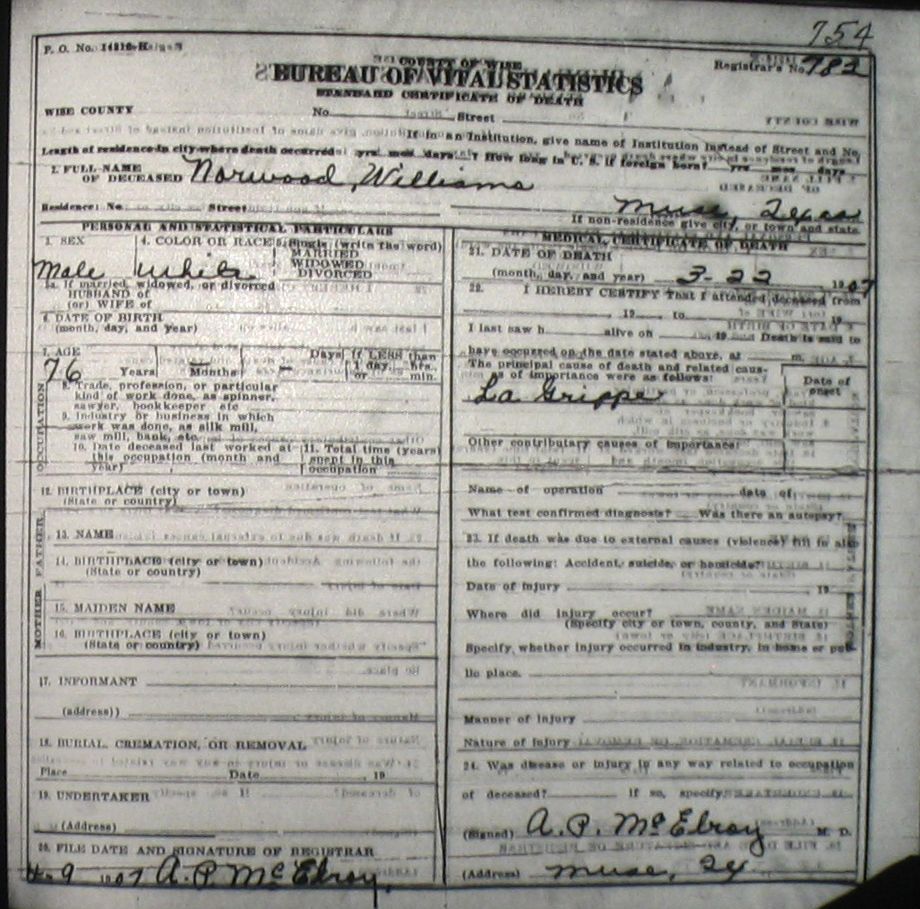 754
P. O. No. 14219-K
COUNTY OF WISE
Registrar's No. 782
BUREAU OF VITAL STATISTICS
STANDARD CERTIFICATE OF DEATH
WISE COUNTY No. Street
If in an Institution, give name of Institution instead of Street and No.
Length of residence in city where death occurred yrs mos days. How long in U. S. if foreign born? yrs mos days
2. FULL NAME
OF DECEASED Norwood, Williams
Residence: No. Street Muse, Texas
If non-residence give city, or town and state.
PERSONAL AND STATISTICAL PARTICULARS
3. SEX 4. COLOR OR RACE 5. Single (write the word)
MARRIED
WIDOWED
DIVORCED
Male White
5a. If married, widowed, or divorced
HUSBAND of
(or) WIFE of
6. DATE OF BIRTH
(month, day, and year)
7. AGE Days If LESS than
76 Years Months 1 day, hrs.
or min.
OCCUPATION
8. Trade, profession, or particular
kind of work done, as spinner,
sawyer, bookkeeper etc
9. Industry or business in which
work was done, as silk mill,
saw mill, bank, etc.
10. Date deceased last worked at 11. Total time (years)
this occupation (month and spent in this
year) occupation
12. BIRTHPLACE (city or town)
(State or country)
FATHER
13. NAME
14. BIRTHPLACE (city or town)
(State or country)
MOTHER
15. MAIDEN NAME
16. BIRTHPLACE (city or town)
(State or country)
17. INFORMANT
(address))
18. BURIAL, CREMATION, OR REMOVAL
Place Date 19
19. UNDERTAKER
(Address)
20. FILE DATE AND SIGNATURE OF REGISTRAR
4-9 1907 A. P. McElroy,
MEDICAL CERTIFICATE OF DEATH
21. DATE OF DEATH
(month, day, and year) 3-22 1907
22. I HEREBY CERTIFY That I attended deceased from
, 19 , to 19
I last saw h alive on 19 Death is said to
have occurred on the date stated above, at m.
The principal cause of death and related caus-
es of importance were as follows: Date of
onset
La Grippe
Other contributary causes of importance:
Name of operation date of
What test confirmed diagnosis? Was there an autopsy?
23. If death was due to external causes (violence) fill in also
the following: Accident, suicide, or homicide?
Date of injury 19
Where did injury occur?
(Specify city or town, county, and State)
Specify whether injury occurred in industry, in home or pub
lic place.
Manner of injury
Nature of injury
24. Was disease or injury in any way related to occupation
of deceased? If so, specify
(Signed) A. P. McElroy M. D.
(Address) Muse, Tex